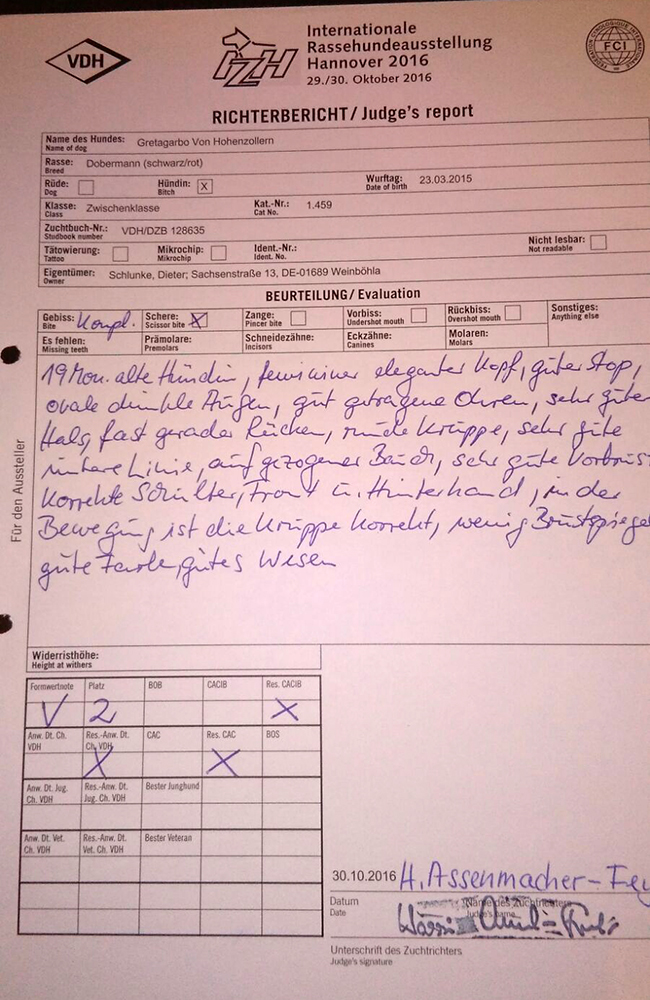 VDH
IZH
Internationale
Rassehundeausstellung
Hannover 2016
29./30. Oktober 2016
FEDERATION CYNOLOGIQUE INTERNATIONALE
FCI
RICHTERBERICHT / Judge's report
Name des Hundes: Gretagarbo Von Hohenzollern
Name of dog
Rasse: Dobermann (schwarz/rot)
Breed
Rüde: Hündin: X Wurftag: 23.03.2015
Dog Bitch Date of birth
Klasse: Zwischenklasse Kat.-Nr.: 1.459
Class Cat No.
Zuchtbuch-Nr.: VDH/DZB 128635
Studbook number
Tätowierung: Mikrochip: Ident.-Nr.: Nicht lesbar:
Tattoo Mikrochip Ident. No. Not readable
Eigentümer: Schlunke, Dieter; Sachsenstraße 13, DE-01689 Weinböhla
Owner
BEURTEILUNG / Evaluation
Gebiss: Kompl. Schere: X Zange: Vorbiss: Rückbiss: Sonstiges:
Bite Scissor bite Pincer bite Undershot mouth Overshot mouth Anything else
Es fehlen: Prämolare: Schneidezähne: Eckzähne: Molaren:
Missing teeth Premolars Incisors Canines Molars
19 Mon. alte Hündin, femininer eleganter Kopf, guter Stop,
ovale dunkle Augen, gut getragene Ohren, sehr guter
Hals, fast gerader Rücken, runde Kruppe, sehr gute
untere Linie, aufgezogener Bauch, sehr gute Vorbrust
Korrekte Schulter, Front u. Hinterhand, in der
Bewegung ist die Kruppe Korrekt, wenig Brustspiegel
gute Farbe, gutes Wesen
Für den Aussteller
Widerristhöhe:
Height at withers
Formwertnote Platz BOB CACIB Res. CACIB
V 2 X
Anw. Dt. Ch. VDH Res.-Anw. Dt. Ch. VDH CAC Res. CAC BOS
X X
Anw. Dt. Jug. Ch. VDH Res.-Anw. Dt. Jug. Ch. VDH Bester Junghund
Anw. Dt. Vet. Ch. VDH Res.-Anw. Dt. Vet. Ch. VDH Bester Veteran
30.10.2016 H. Assenmacher-Fey
Datum Name des Zuchtrichters
Date Judge's name
Unterschrift des Zuchtrichters
Judge's signature